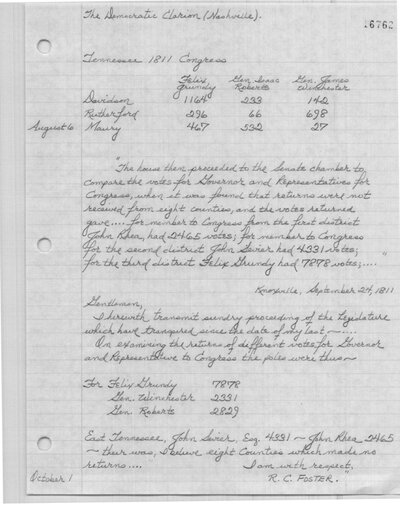 The Democratic Clarion (Nashville).
16762
Tennessee 1811 Congress
Felix Grundy Gen. Isaac Roberts Gen. James Winchester
Davidson 1164 233 142
Rutherford 296 66 698
August 6 Maury 467 532 27
"The house then proceeded to the Senate chamber to
compare the votes for Governor and Representatives for
Congress, when it was found that returns were not
received from eight counties, and the votes returned
gave.... For member to Congress from the first district
John Rhea, had 2465 votes; for member to Congress
for the second district John Sevier had 4331 votes;
for the third district Felix Grundy had 7878 votes;...."
Knoxville, September 24, 1811
Gentlemen,
I herewith transmit sundry proceeding of the Legislature
which have transpired since the date of my last ~....
On examining the returns of different votes for Governor
and Representative to Congress the poles were thus~
For Felix Grundy 7878
Gen. Winchester 2331
Gen. Roberts 2829
East Tennessee, John Sevier, Esq. 4331 ~ John Rhea 2465
~ their was, I believe eight Counties which made no
returns.... I am with respect,
October 1 R. C. FOSTER."